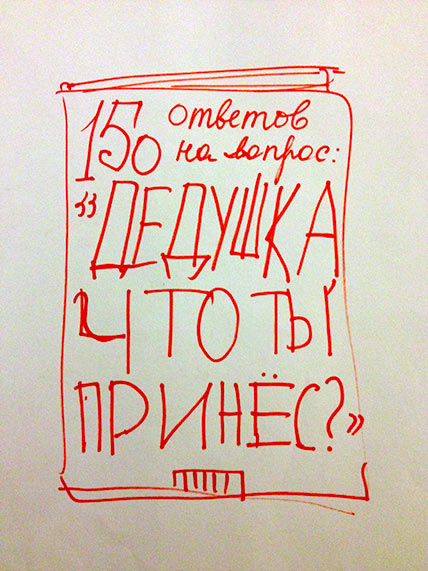 150 ответов
на вопрос:
"ДЕДУШКА
ЧТО ТЫ
ПРИНЁС?»